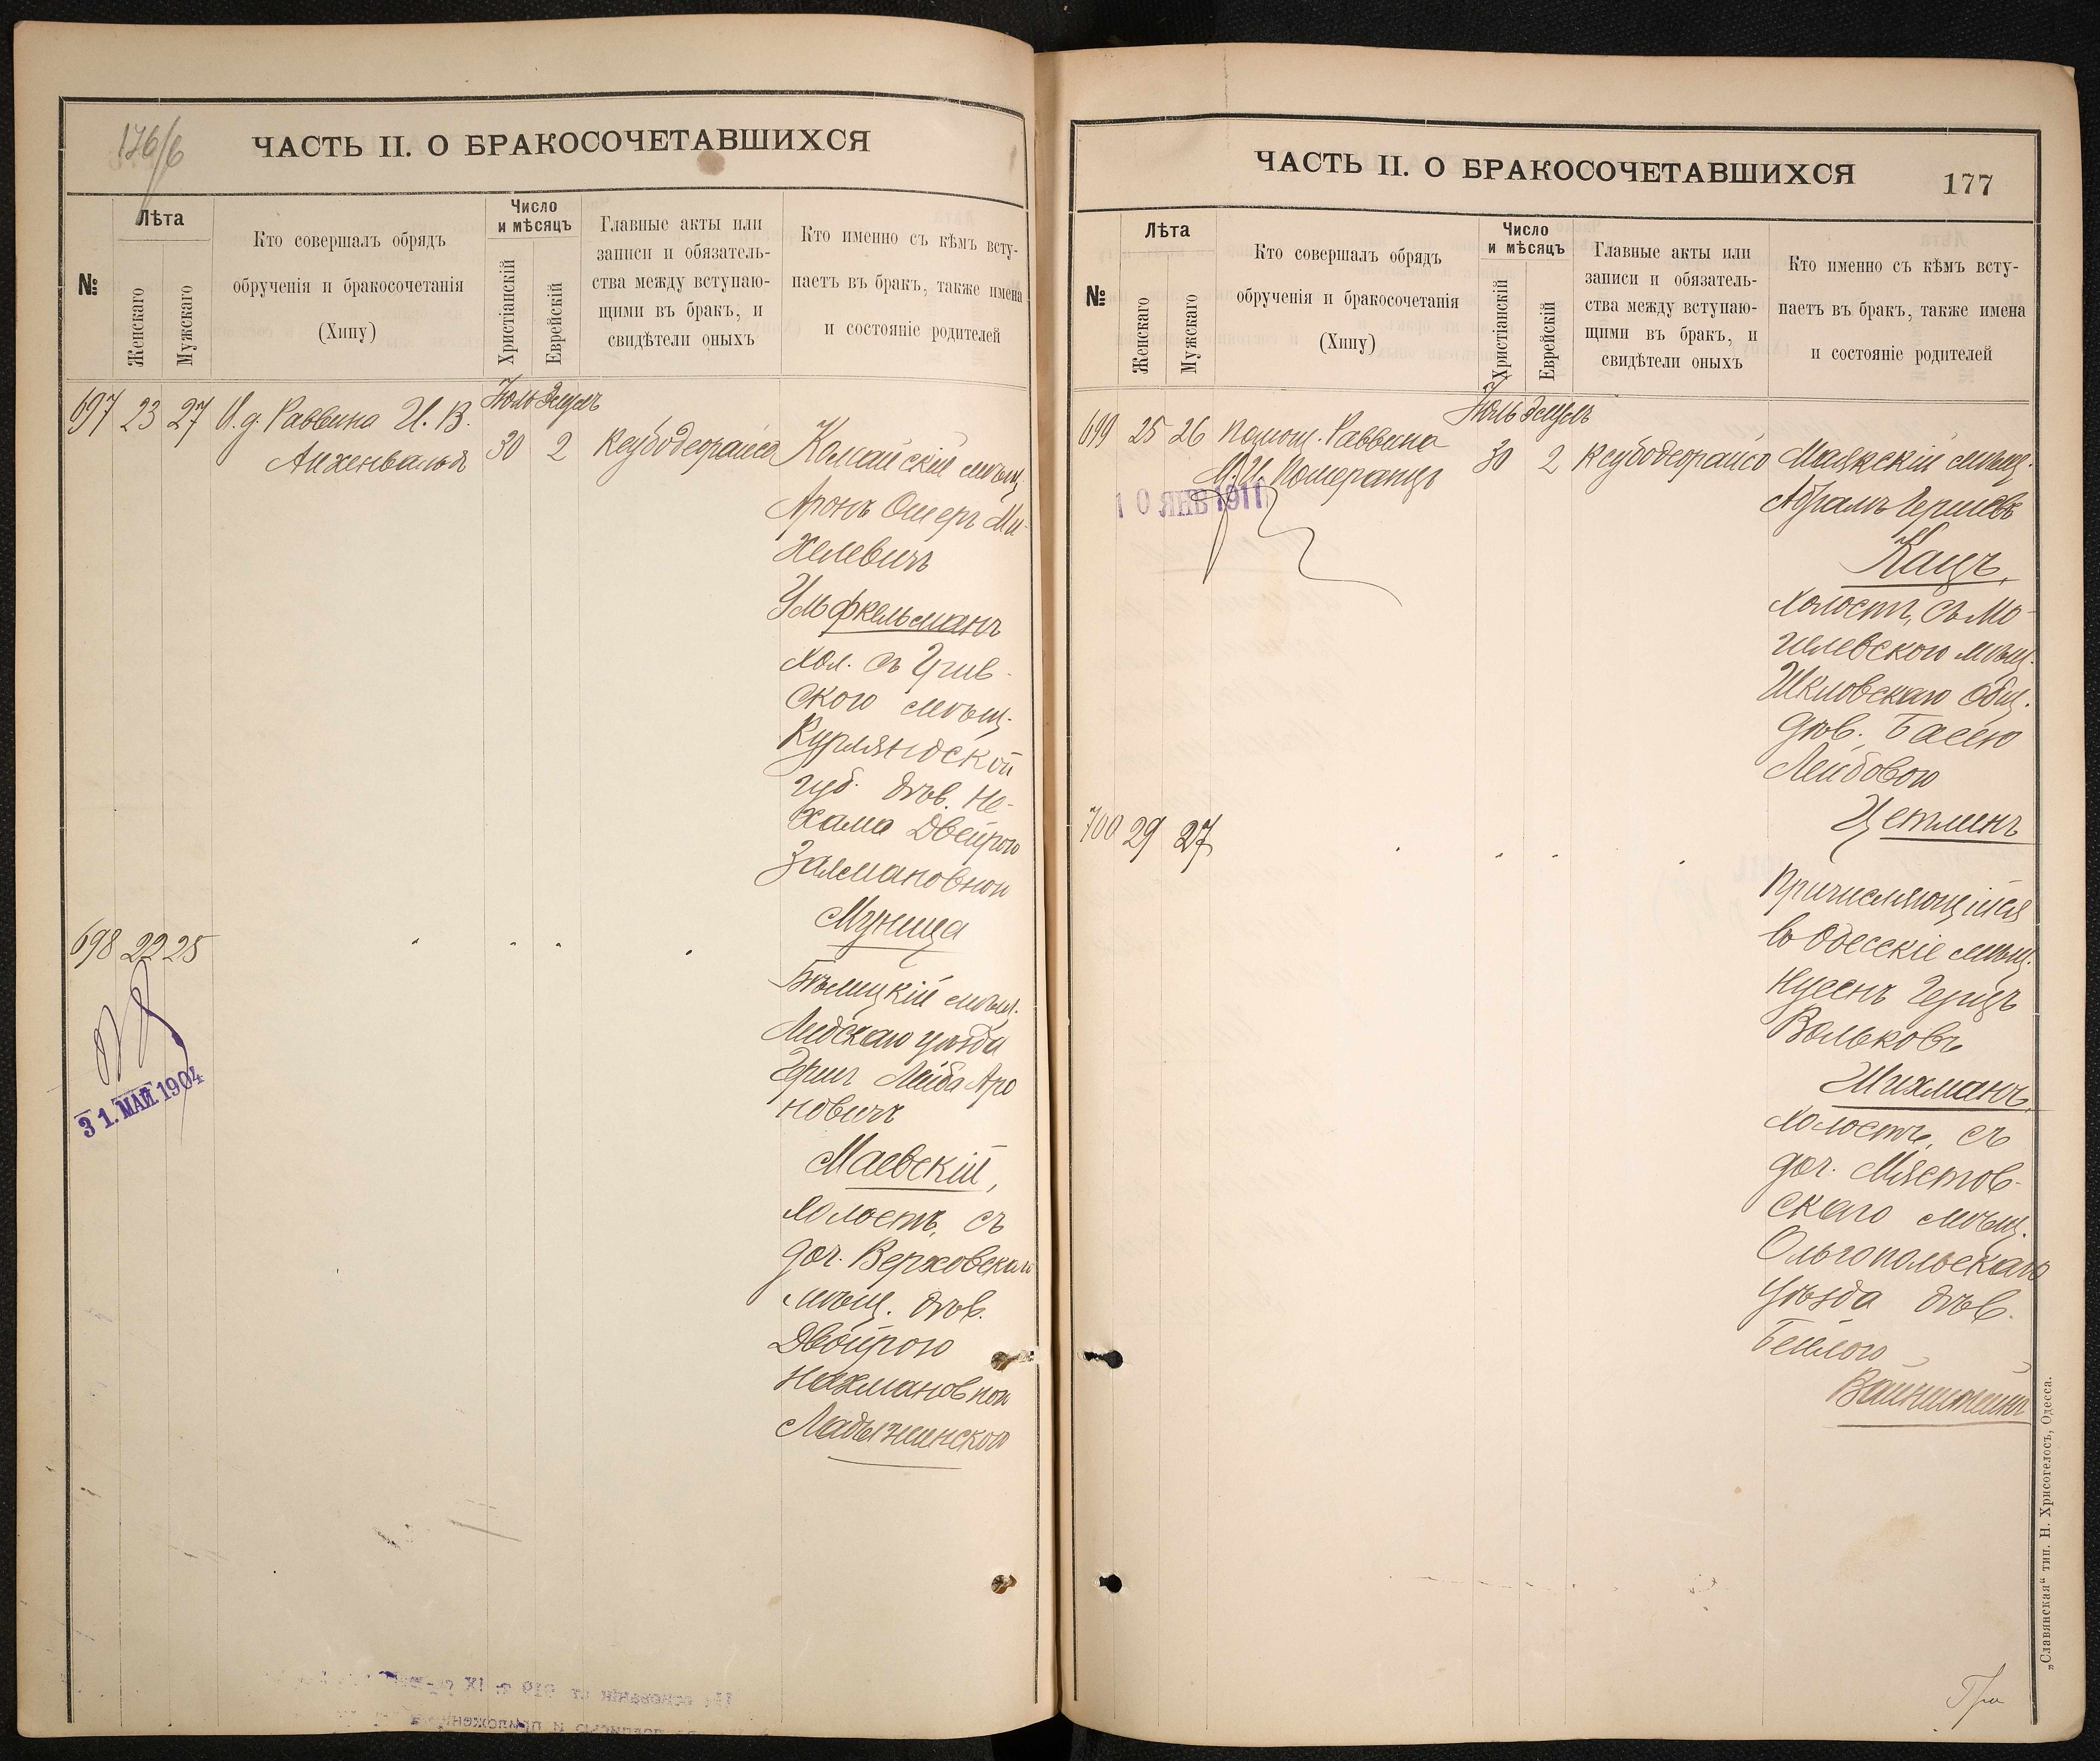 176/6
ЧАСТЬ II. О БРАКОСОЧЕТАВШИХСЯ
№
Лѣта
Женскаго
Мужскаго
Кто совершалъ обрядъ
обрученія и бракосочетанія
(Хипу)
Число
и мѣсяцъ
Христіанскій
Еврейскій
Главные акты или
записи и обязатель-
ства между вступаю-
щими въ бракъ, и
свидѣтели оныхъ
Кто именно съ кѣмъ всту-
паетъ въ бракъ, также имена
и состояніе родителей
697 23 27 И. д. Раввина И. В.
Айхенвальдъ
Іюль Элулъ
30 2
Ксубодеорайсо
Комайскій мѣщ.
Аронъ Ошеръ Ми-
хелевичъ
Ульфкельманъ
хол. съ Грив-
ского мѣщ.
Курляндской
губ. дѣв. Не-
хама Двейрою
Залмановной
Муница
698 22 25
Бѣлицкій мѣщ.
Лидскаго уѣзда
Гершъ Лейба Аро
новичъ
Маевскій,
холостъ, съ
доч. Верховскаго
мѣщ. дѣв.
Двойрою
Нахмановной
Ладыжинской
31. МАЙ 1904
ЧАСТЬ II. О БРАКОСОЧЕТАВШИХСЯ
177
№
Лѣта
Женскаго
Мужскаго
Кто совершалъ обрядъ
обрученія и бракосочетанія
(Хипу)
Число
и мѣсяцъ
Христіанскій
Еврейскій
Главные акты или
записи и обязатель-
ства между вступаю-
щими въ бракъ, и
свидѣтели оныхъ
Кто именно съ кѣмъ всту-
паетъ въ бракъ, также имена
и состояніе родителей
699 25 26 Помощ. Раввина
Померанцъ
10 ЯНВ 1911
Іюль Элулъ
30 2
Ксубодеорайсо
Маякскій мѣщ.
Абрамъ Гершевъ
Кацъ,
холостъ, съ Мо-
гилевского мѣщ.
Шкловскаго общ.
дѣв. Басею
Лейбовою
Цетлинъ
700 29 27
Причисляющійся
въ Одесскіе мѣщ.
Нусенъ Герцъ
Вольковъ
Шихманъ,
холостъ, съ
доч. Мястков-
скаго мѣщ.
Ольгопольскаго
уѣзда дѣв.
Бейлою
Вайнштейнъ
„Славянская“ тип. Н. Хрисогелосъ, Одесса.